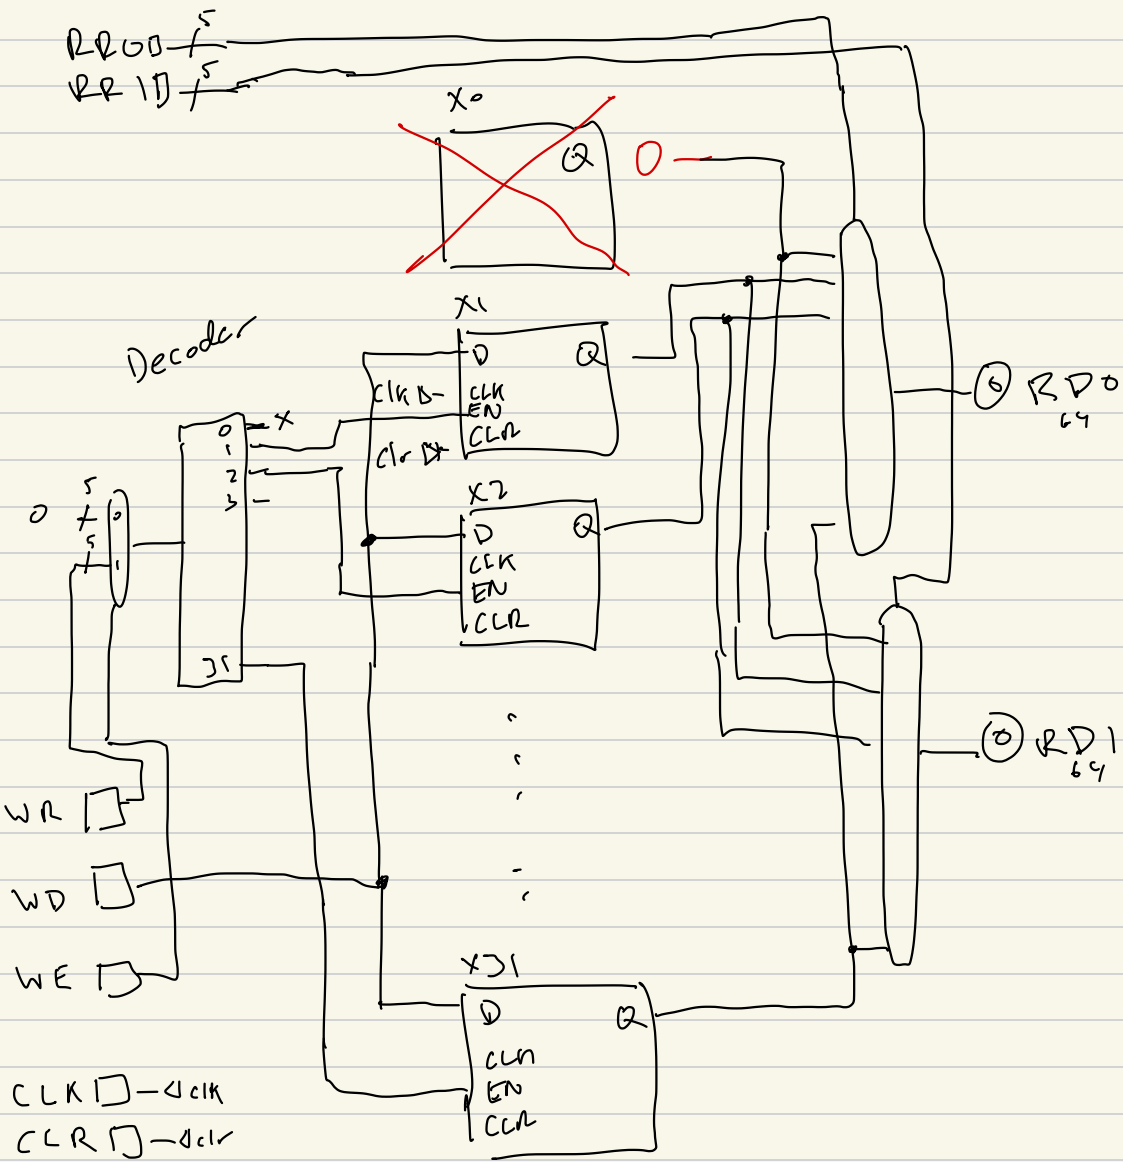 RR0 5
RR1 5
X0
Q 0
X1
Decoder
D Q
Clk CLK
EN
Clr CLR
0 X
1
2
3
31
X2
D Q
CLK
EN
CLR
0 5 0
5 1
RD0
64
RD1
64
WR
WD
WE
X31
D Q
CLK
EN
CLR
CLK clk
CLR clr